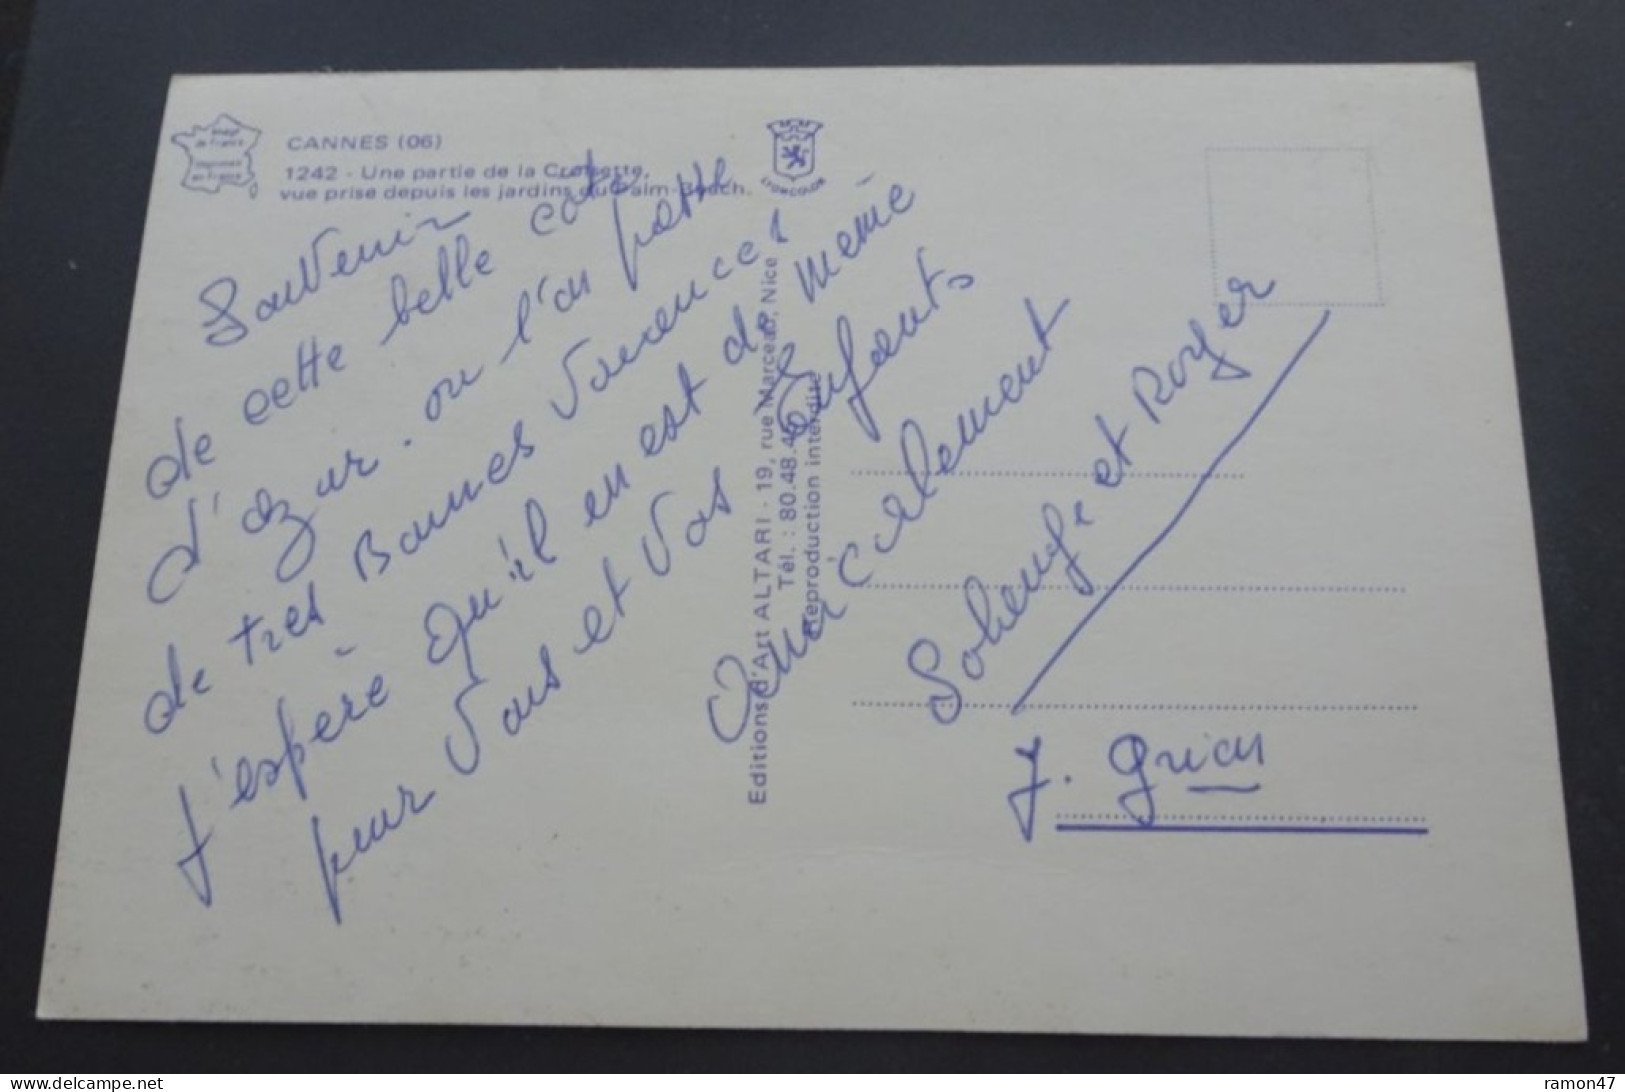 CANNES (06)
1242 - Une partie de la Croisette,
vue prise depuis les jardins du Palm-Beach.
LYONCOLOR
Souvenir
de cette belle cote
d'azur. ou l'on passe
de tres Bonnes Vacances!
j'espère qu'il en est de même
pour Vous et Vos Enfants
Amicalement
Solange et Roger
J.
Editions d'Art ALTARI - 19, rue Marceau, Nice
Tél. : 80.48.
Reproduction interdite
ramon47